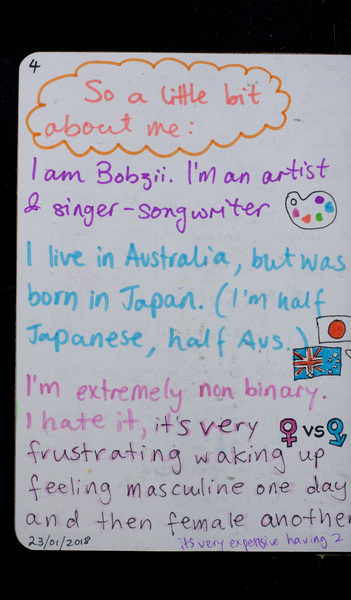 4
So a little bit
about me:
I am Bobzii. I'm an artist
& singer-songwriter
I live in Australia, but was
born in Japan. (I'm half
Japanese, half Aus.)
I'm extremely non binary.
I hate it, it's very
♀ vs ♂
frustrating waking up
feeling masculine one day
and then female another
23/01/2018
it's very expensive having 2